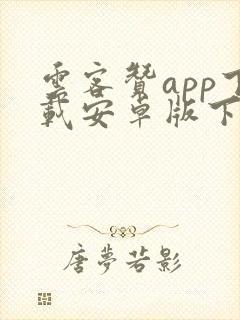 雲客贊app下
載安卓版下
唐夢若影